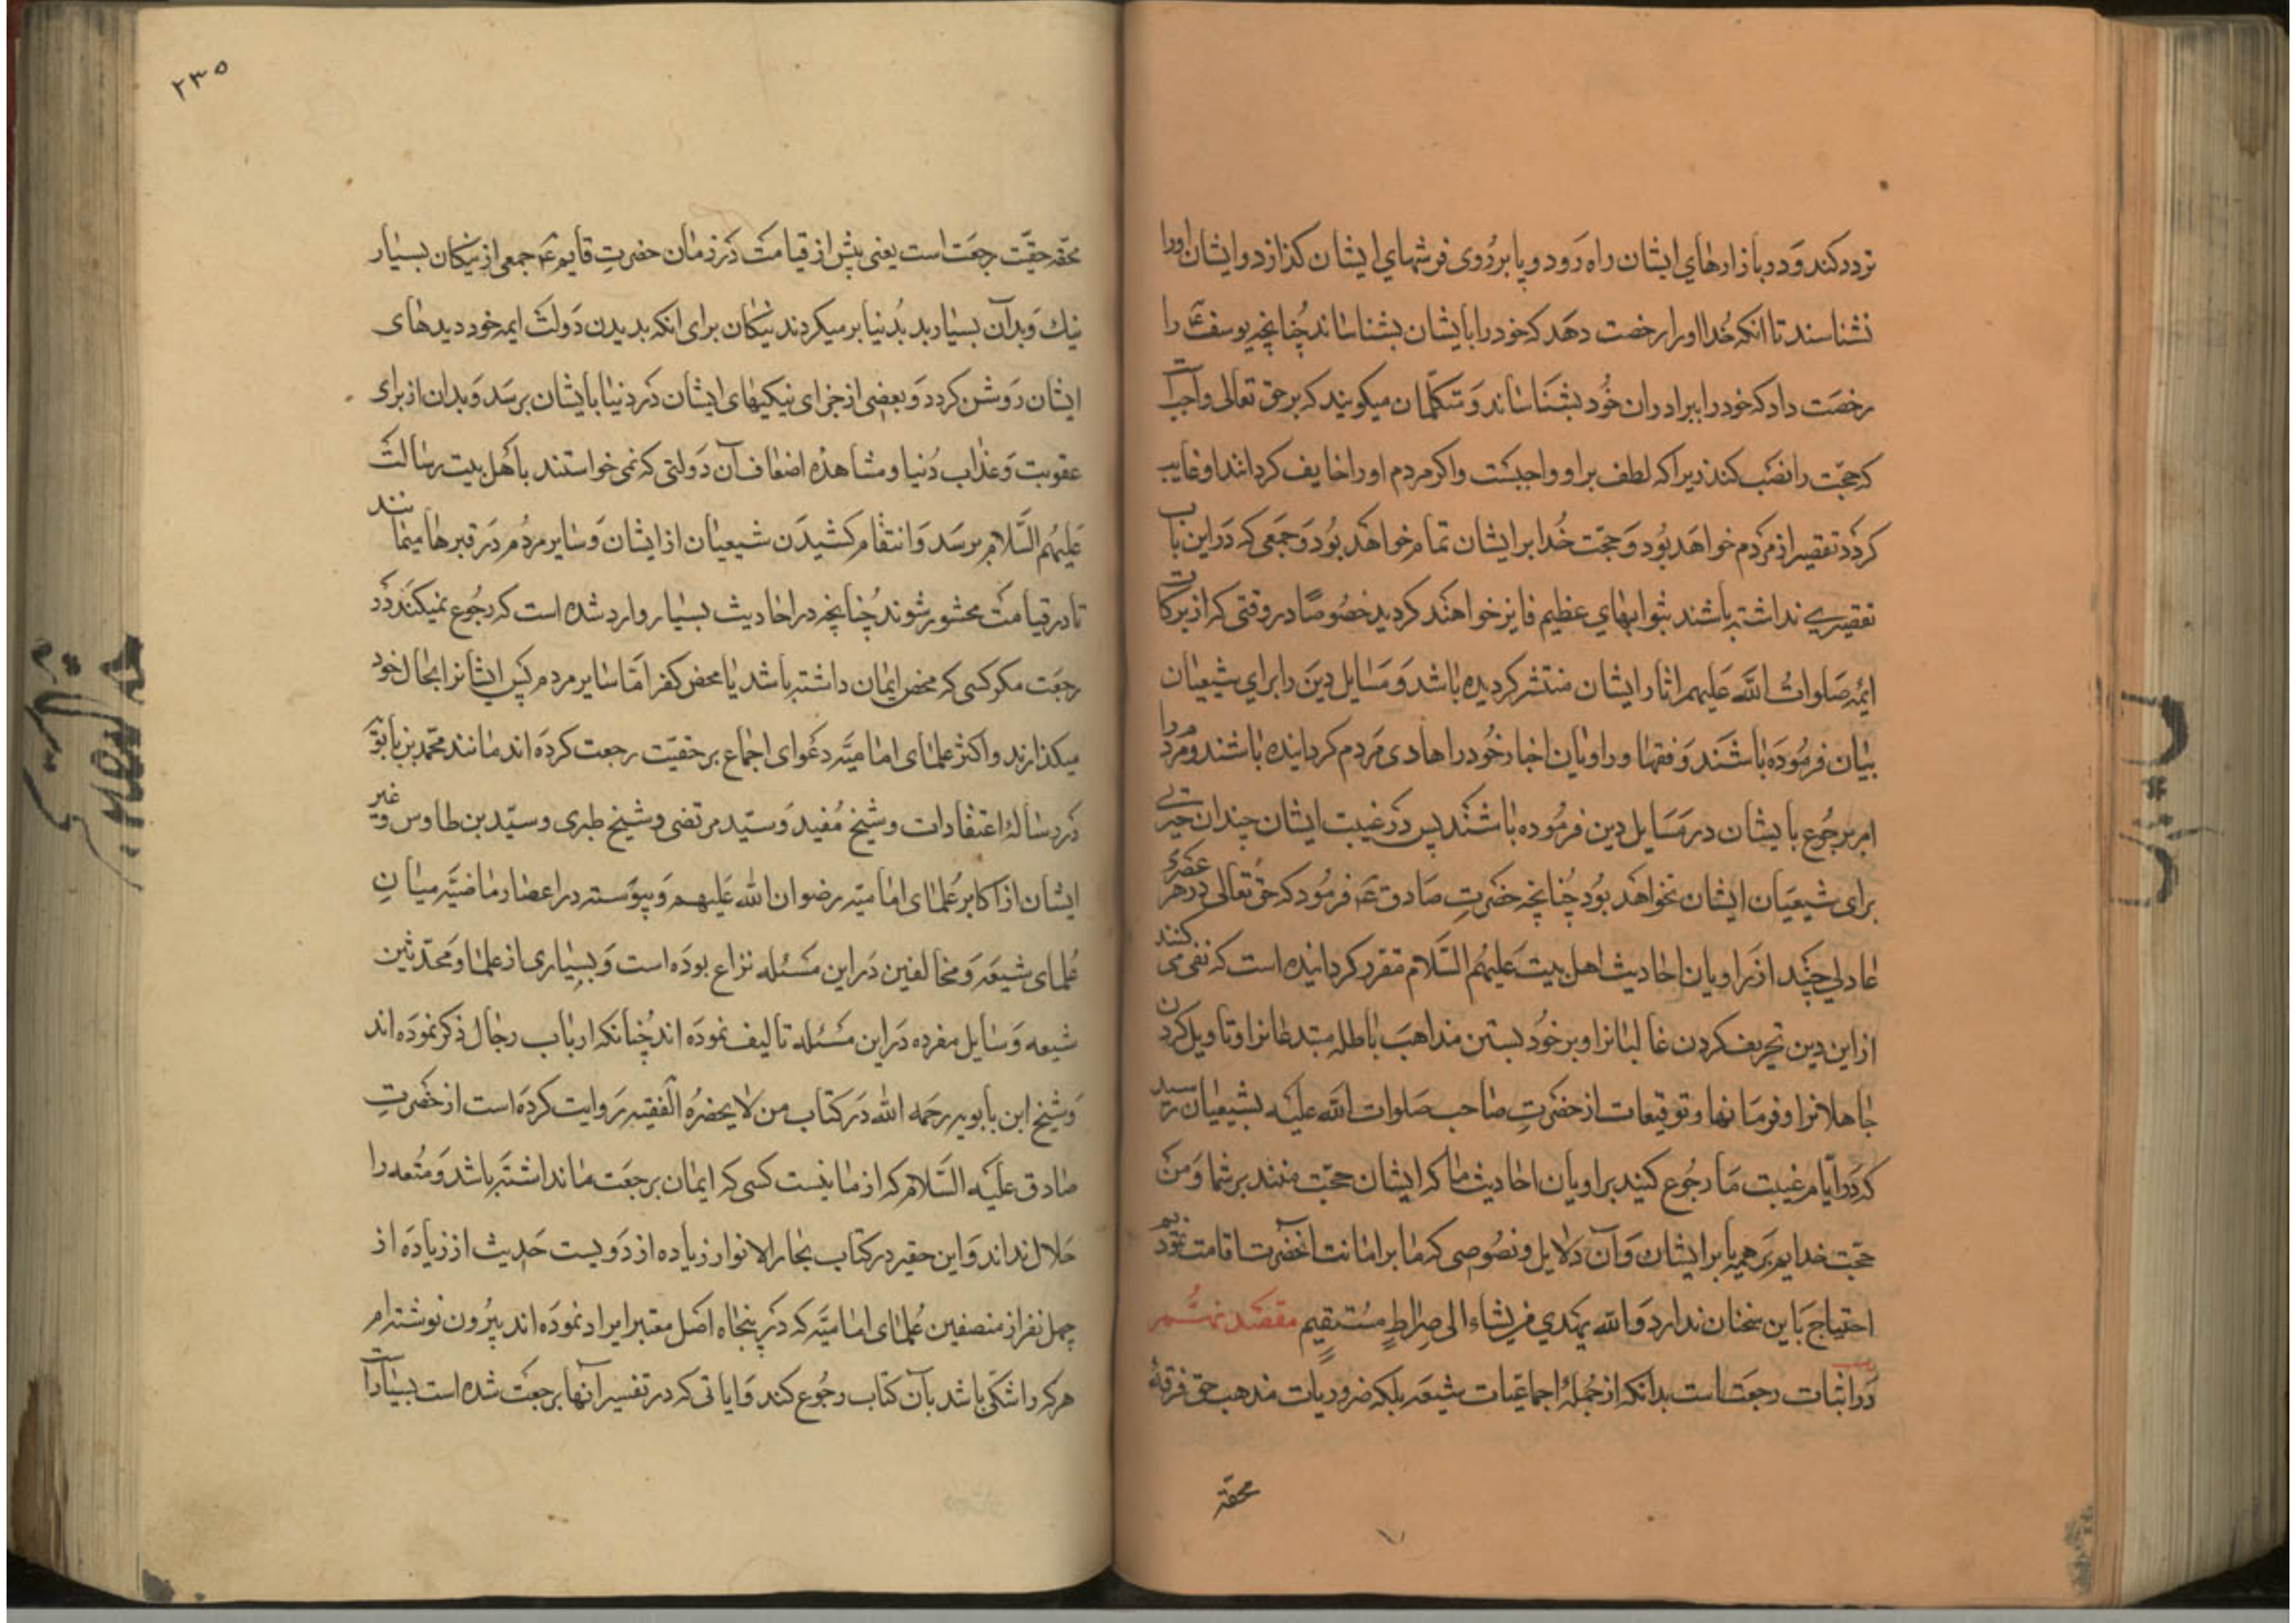 تردد کند و در بازارهای ایشان راه رود و پا بر روی فرشهای ایشان کذارد و ایشان او را
نشناسند تا انکه خدا او را رخصت دهد که خود را بایشان بشناساند چنانچه یوسف ع را
رخصت داد که خود را ببرادران خود بشناساند و متکلمان میکویند که بر حق تعالی واجبست
که حجت را نصب کند زیرا که لطف بر او واجبست و اکر مردم او را خایف کردانند او غایب
کردد تقصیر از مردم خواهد بود و حجت خدا بر ایشان تمام خواهد بود و جمعی که در این باب
تقصیری نداشته باشند بثوابهای عظیم فایز خواهند کردید خصوصا در وقتی که از برکات
ائمه صلوات الله علیهم اثار ایشان منتشر کردیده باشد و مسایل دین را برای شیعیان
بیان فرموده باشند و فقها و راویان اخبار خود را هادی مردم کردانیده باشند و مردم را
امر برجوع بایشان در مسایل دین فرموده باشند پس در غیبت ایشان چندان حیرتی
برای شیعیان ایشان نخواهد بود چنانچه حضرت صادق ع فرمود که حق تعالی در هر عصری
عادلی چند از راویان احادیث اهل بیت علیهم السلام مقرر کردانیده است که نفی می کنند
از این دین تحریف کردن غالیانرا و بر خود بستن مذاهب باطله مبتدعانرا و تاویل کردن
جاهلانرا و فرمانها و توقیعات از حضرت صاحب صلوات الله علیه بشیعیان رسید
که در ایام غیبت ما رجوع کنید براویان احادیث ما که ایشان حجت منند بر شما و من
حجت خدایم بر همه یا بر ایشان و آن دلایل و نصوصی که ما بر امانت آنحضرت اقامت نمودیم
احتیاج باین سخنان ندارد والله یهدی من یشاء الی صراط مستقیم مقصد نهم
در اثبات رجعت است بدانکه از جمله اجماعیات شیعه بلکه ضروریات مذهب حق فرقه
محقه
۲۳۵
محقه حقیت رجعت است یعنی پیش از قیامت در زمان حضرت قایم ع جمعی از نیکان بسیار
نیک و بدان بسیار بد بدنیا بر میکردند نیکان برای انکه بدیدن دولت ایمه خود دیدهای
ایشان روشن کردد و بعضی از جزای نیکیهای ایشان در دنیا بایشان برسد و بدان از برای
عقوبت و عذاب دنیا و مشاهده اضعاف آن دولتی که نمی خواستند باهل بیت رسالت
علیهم السلام برسد و انتقام کشیدن شیعیان از ایشان و سایر مردم در قبرها میمانند
تا در قیامت محشور شوند چنانچه در احادیث بسیار وارد شده است که رجوع نمیکند در
رجعت مکر کسی که محض ایمان داشته باشد یا محض کفر اما سایر مردم پس ایشانرا بحال خود
میکذارند و اکثر علمای امامیه دعوای اجماع بر حقیت رجعت کرده اند مانند محمد بن بابویه
در رساله اعتقادات و شیخ مفید و سید مرتضی و شیخ طبری و سید بن طاوس و غیر
ایشان از اکابر علمای امامیه رضوان الله علیهم و پیوسته در اعصار ماضیه میان
علمای شیعه و مخالفین در این مسئله نزاع بوده است و بسیاری از علما و محدثین
شیعه و سایل مفرده در این مسئله تالیف نموده اند چنانکه ارباب رجال ذکر نموده اند
و شیخ ابن بابویه رحمه الله در کتاب من لا یحضره الفقیه روایت کرده است از حضرت
صادق علیه السلام که از ما نیست کسی که ایمان برجعت ما نداشته باشد و متعه را
حلال نداند و این حقیر در کتاب بحار الانوار زیاده از دویست حدیث از زیاده از
چهل نفر از منصفین علمای امامیه که در پنجاه اصل معتبر ایراد نموده اند بیرون نوشته ام
هر که را شکی باشد بآن کتاب رجوع کند و ایاتی که در تفسیر آنها برجعت شده است بسیار است